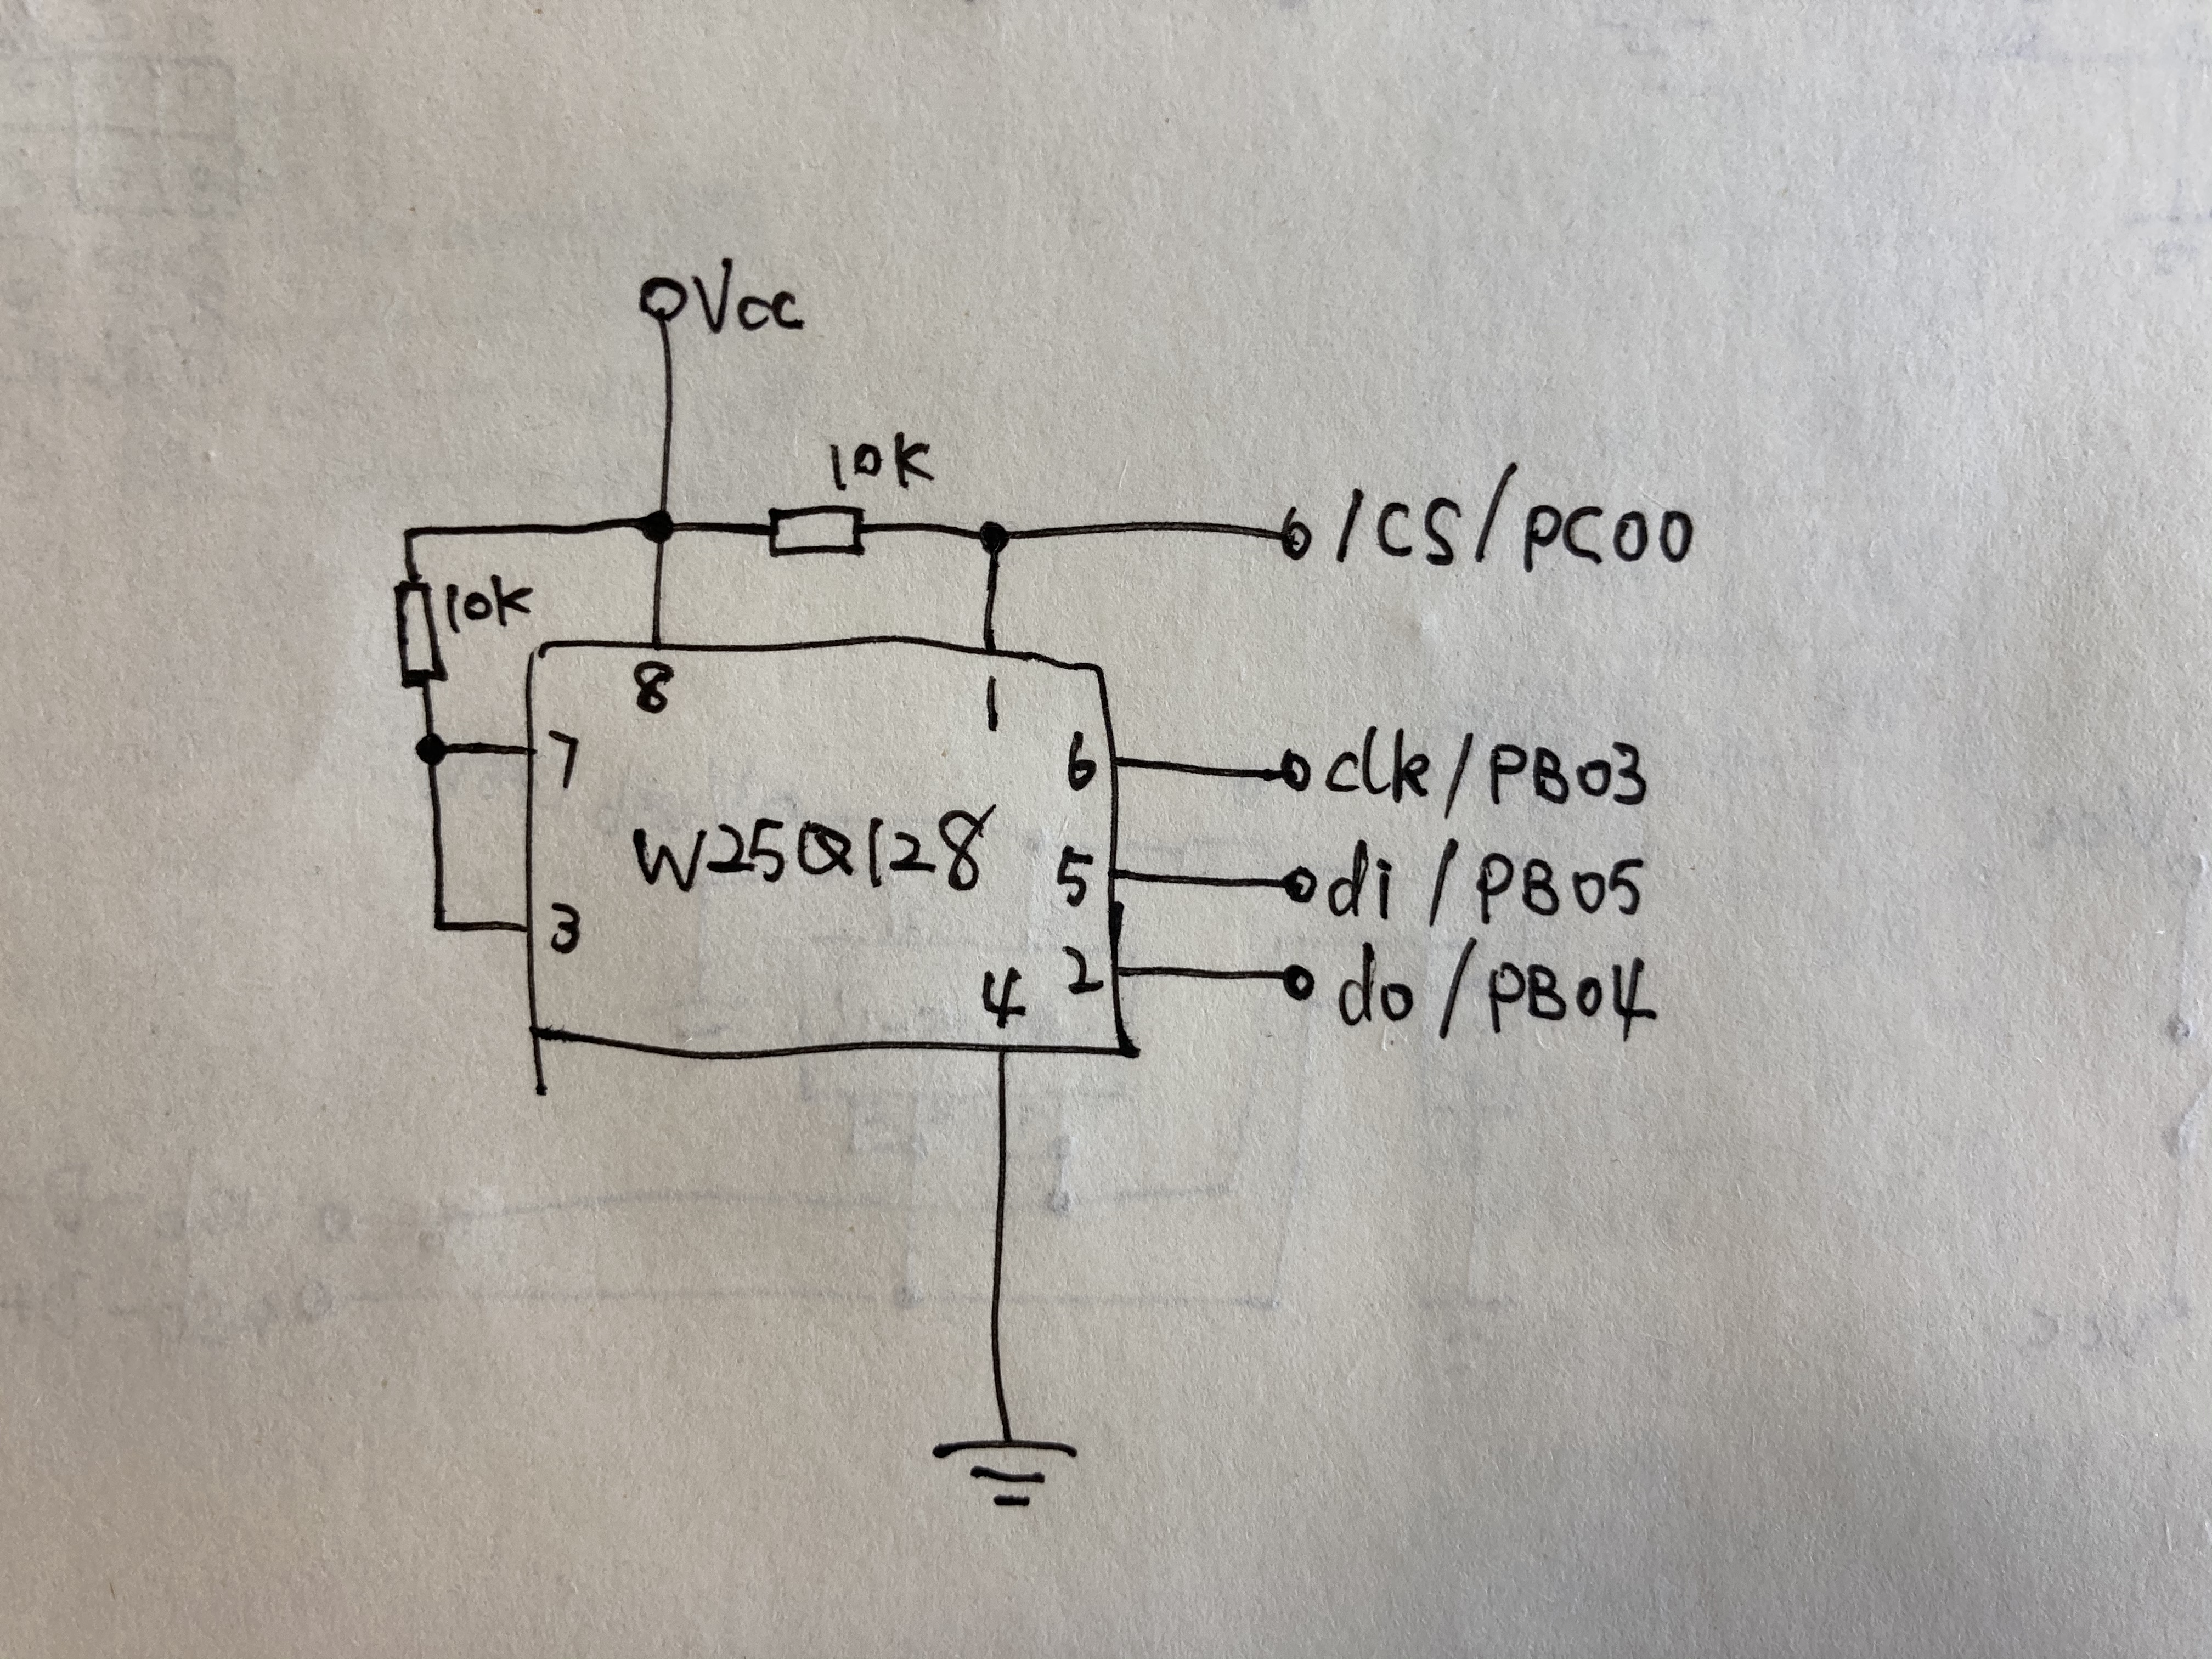 Vcc
10K
/CS/PC00
10K
8
1
7
6
clk/PB03
W25Q128
5
di/PB05
3
2
do/PB04
4